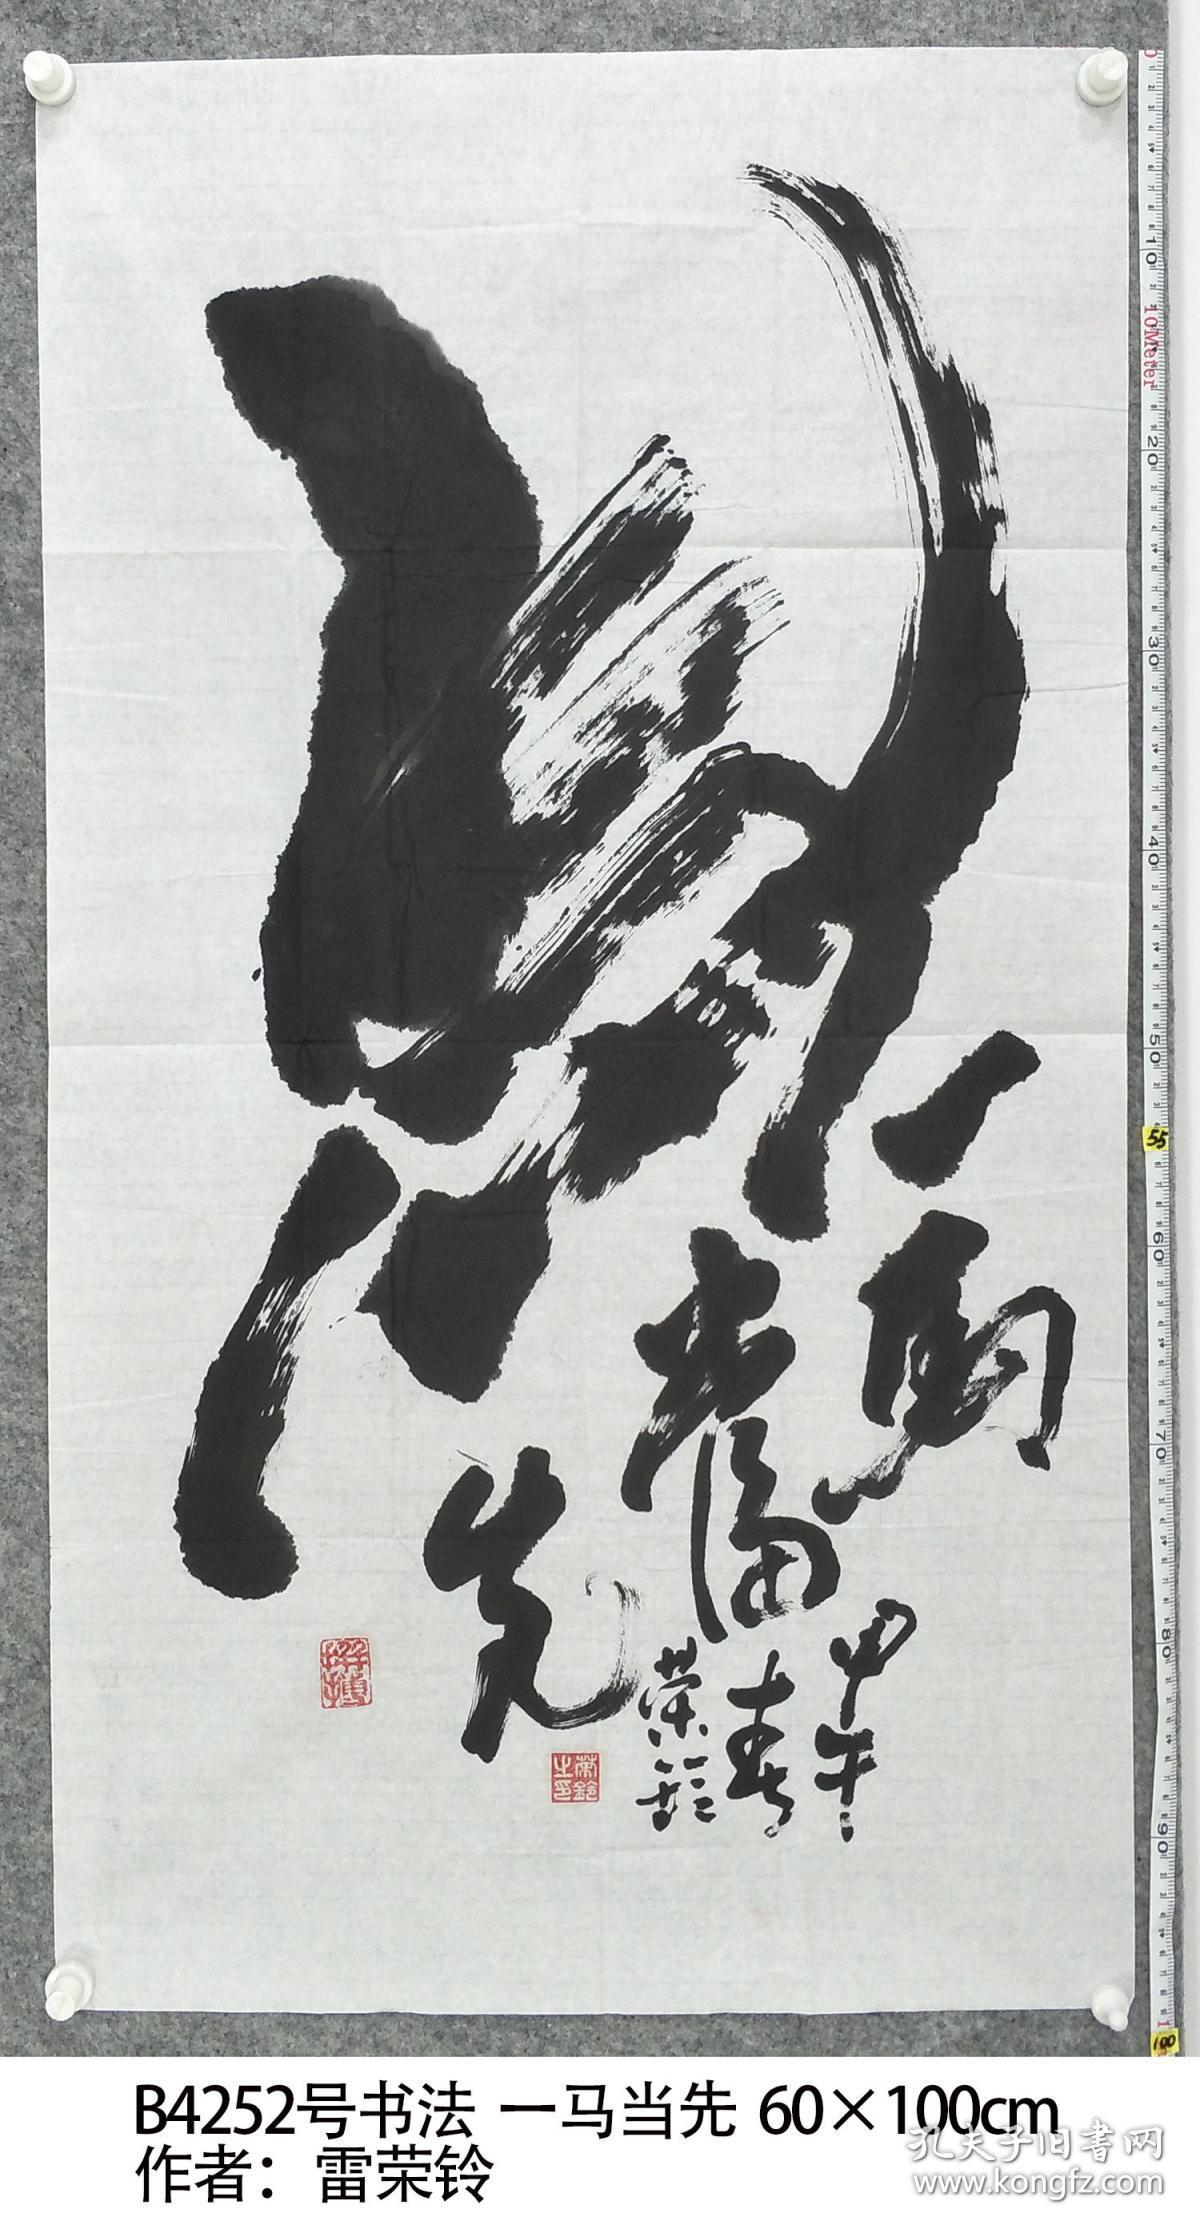 馬
一馬
當
先
甲午
春
荣铃
荣鈴之印
10Meter
0
10
20
30
40
50
55
60
70
80
90
100
B4252号书法 一马当先 60×100cm
作者：雷荣铃
孔夫子旧书网
www.kongfz.com